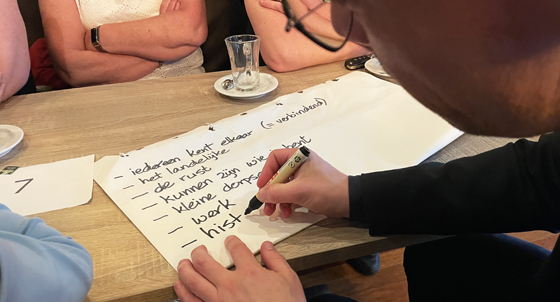 - iedereen kent elkaar (= verbindend)
- het landelijke
- de rust
- kunnen zijn wie bent
- kleine dorps
- werk
- hist